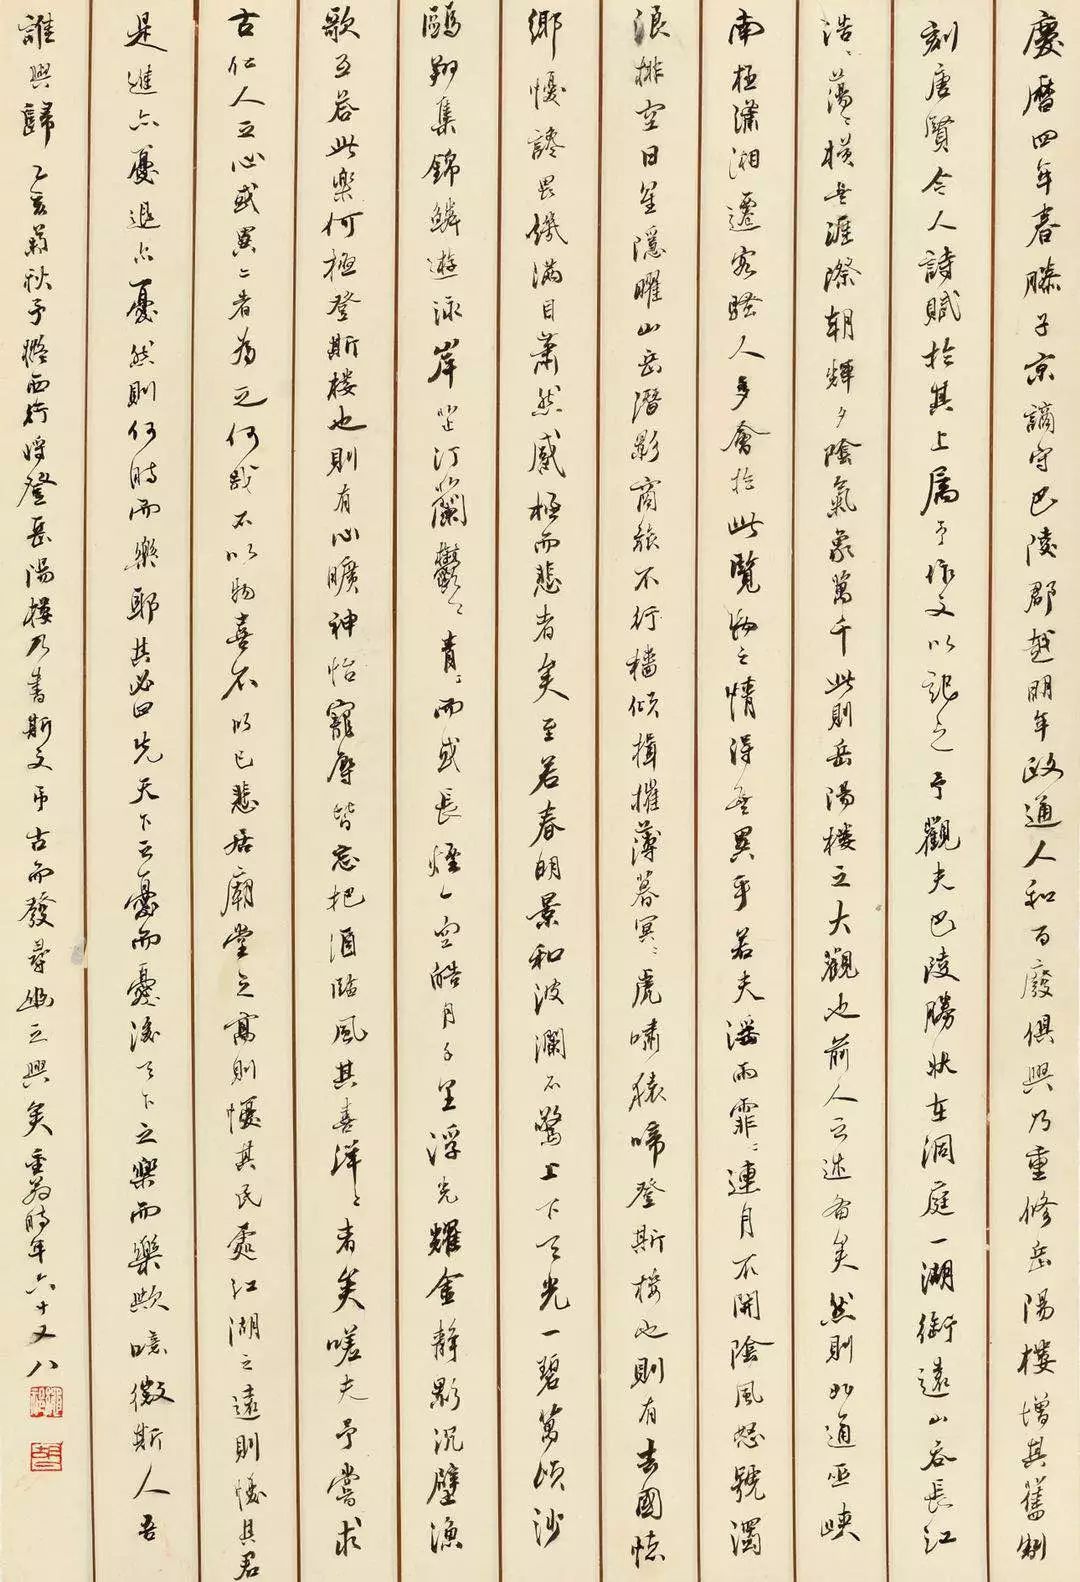 慶曆四年春滕子京謫守巴陵郡越明年政通人和百廢俱興乃重修岳陽樓增其舊制
刻唐賢今人詩賦於其上屬予作文以記之予觀夫巴陵勝狀在洞庭一湖銜遠山吞長江
浩〻蕩〻橫無涯際朝輝夕陰氣象萬千此則岳陽樓之大觀也前人之述备矣然則北通巫峽
南極瀟湘遷客騷人多會於此覽物之情得無異乎若夫淫雨霏〻連月不開陰風怒號濁
浪排空日星隱曜山岳潛影商旅不行檣傾楫摧薄暮冥〻虎嘯猿啼登斯樓也則有去國懷
鄉憂讒畏譏滿目蕭然感極而悲者矣至若春明景和波瀾不驚上下天光一碧萬頃沙
鷗翔集錦鱗遊泳岸芷汀蘭鬱〻青〻而或長煙一空皓月千里浮光耀金靜影沉璧漁
歌互答此樂何極登斯樓也則有心曠神怡寵辱皆忘把酒臨風其喜洋〻者矣嗟夫予嘗求
古仁人之心或異二者為之何哉不以物喜不以己悲居廟堂之高則憂其民處江湖之遠則憂其君
是進亦憂退亦憂然則何時而樂耶其必曰先天下之憂而憂後天下之樂而樂歟噫微斯人吾
誰與歸 乙亥 秋予 西行將登岳陽樓乃書斯文弔古而發尋幽之興矣 時年六十又八